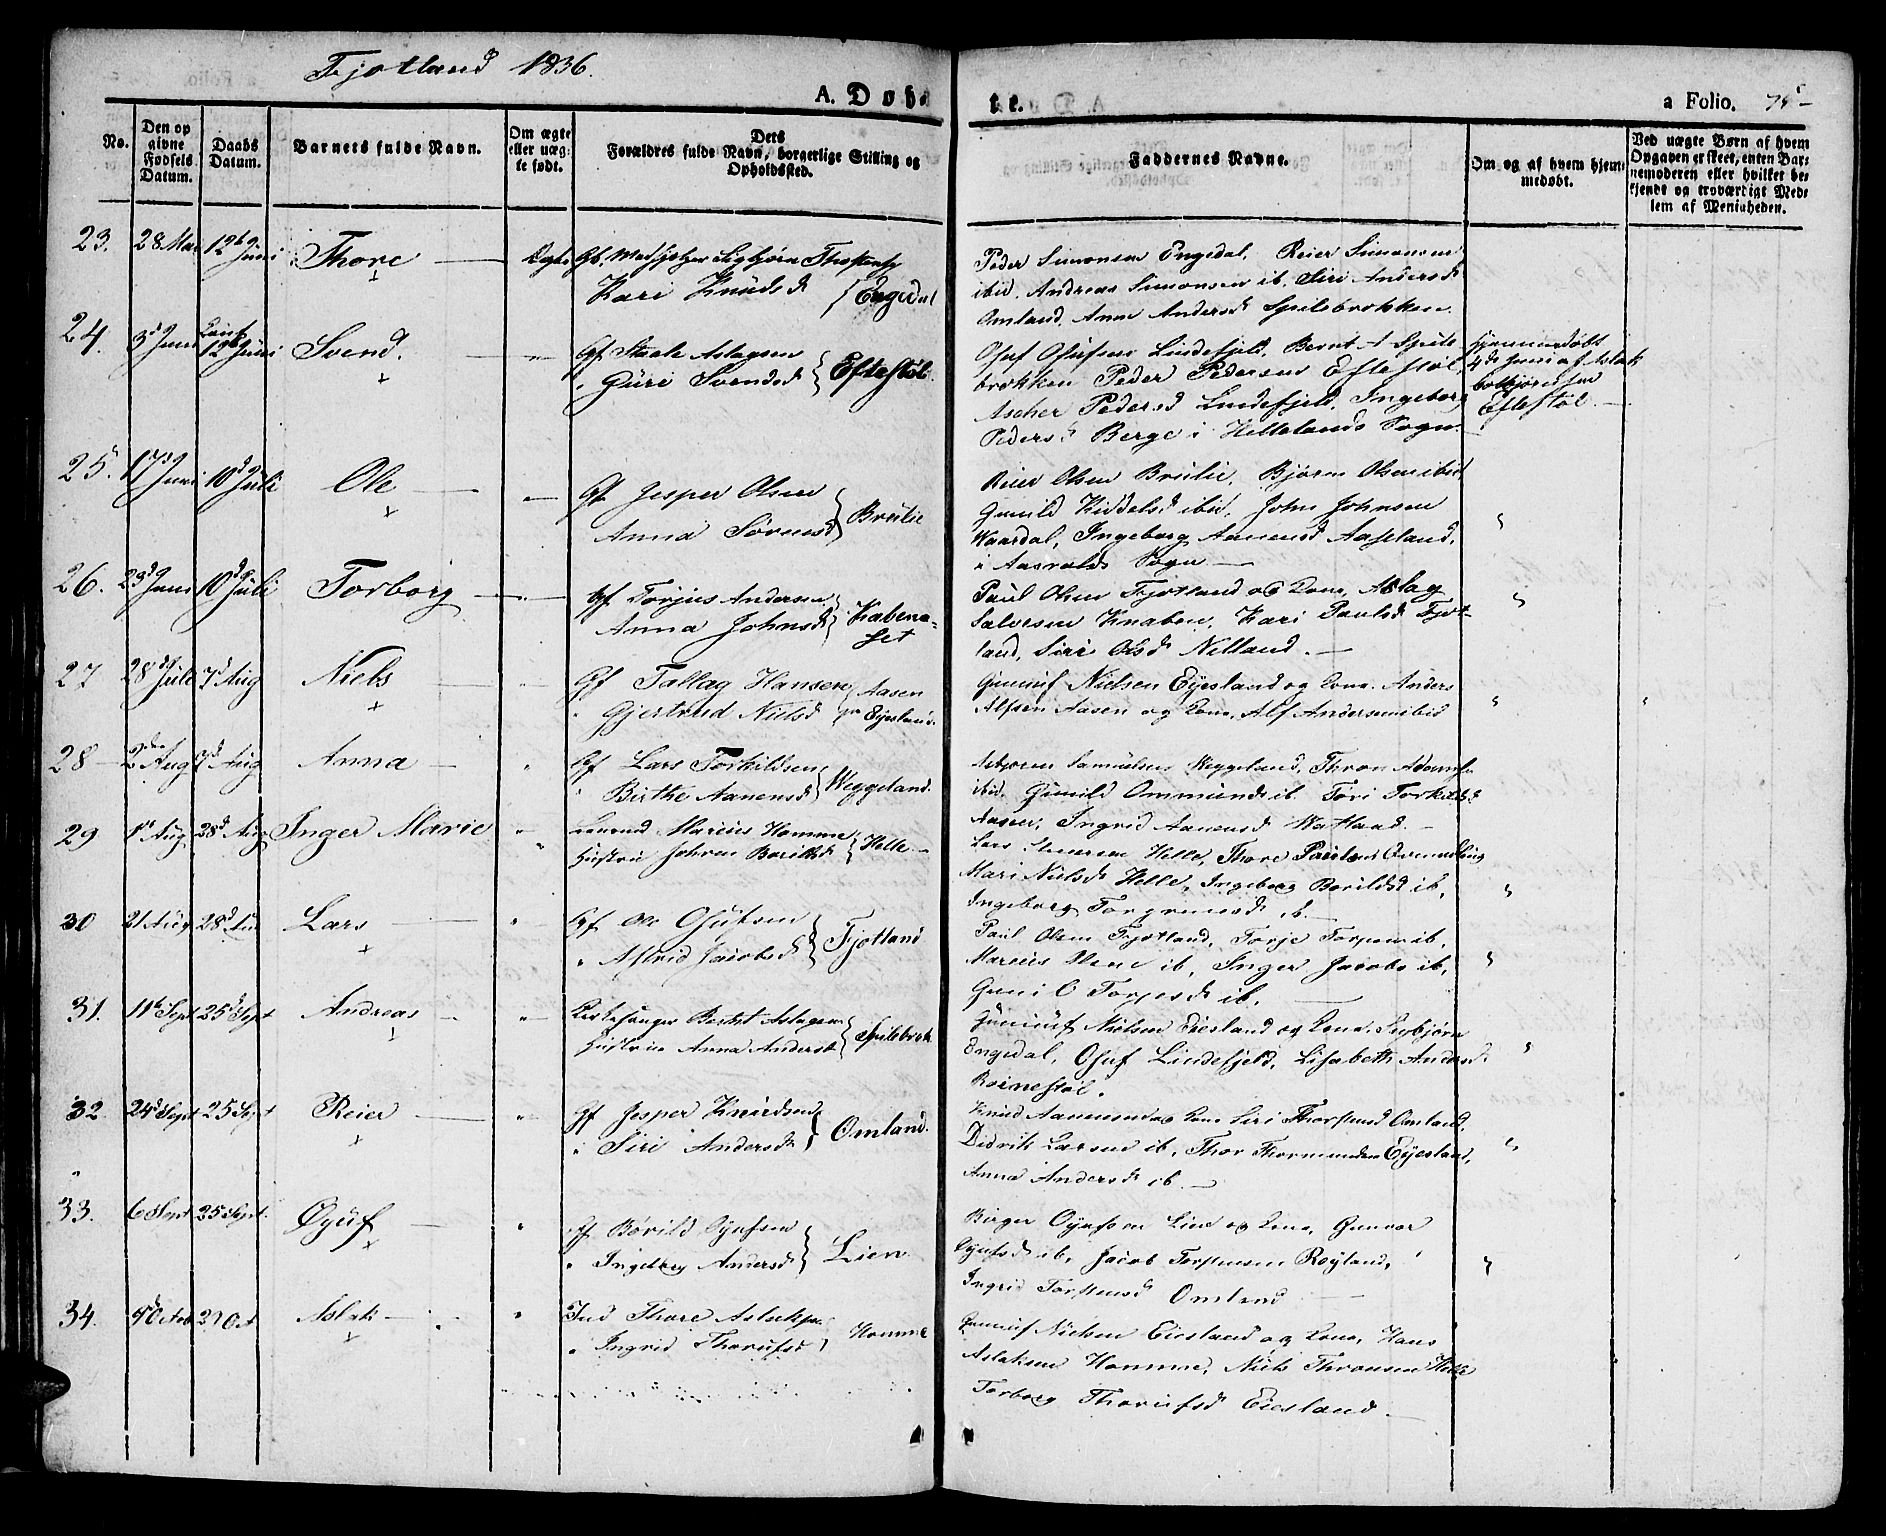 Fjotland 1836.
A. Døbte.
a Folio. 75
No.
Den op
givne
Fødsels
Datum.
Daabs
Datum.
Barnets fulde Navn.
Om ægte
eller uæg-
te født.
Dets
Forældres fulde Navn, borgerlige Stilling og
Opholdssted.
Faddernes Navne.
Om og af hvem hjem-
medøbt.
Ved uægte Børn af hvem
Opgaven er skeet, enten Bar-
nemoderen eller hvilket be-
kjendt og troværdigt Med-
lem af Menigheden.
23. 28 Mai 12te Juni Thore Ægte
Kari Knudsd Engedal
Peder Simonsen Engedal, Reier Simonsen
ibid. Andreas Simonsen ib. Siri Andersd
Omland, Anne Andersd Spilebrokken.
24. 3d Juni 12te Juni Svend. Gf. Staale Aslagsen
Guri Svendsd Eftestøl
Osuf Osufsen Lindefjeld, Bernt A Spile
brokken Peder Pedersen Eftestøl,
Ascher Pedersd Lindefjeld, Ingeborg
Pedersd Berge i Hellelands Sogn.
Hjemmedøbt
4de Juni af Aslak
Eftestøl
25. 17d Juni 10d Juli Ole Gf Jesper Olsen
Anna Sørensd Brulie
Reier Olsen Brulie, Bjørn Olsen ibid
Gunild Kiddelsd ibid, John Johnsen
Waardal, Ingeborg Aanensd Aaseland,
i Aaseralds Sogn
26. 23d Juni 10d Juli Torborg Gf. Torjus Andersen
Anna Johnsd Knabena-
set
Paul Olsen Fjotland og Kone, Aslag
Salvesen Knaben, Kari Paulsd Fjot-
land, Siri Olsd Netland.
27 28d Juli 7d Aug Niels Gf Tallag Hansen
Gjertrud Nielsd Aasen
Eyesland.
Gunuf Nielsen Eyesland og Kone. Anders
Alfsen Aasen og Kone, Alf Andersen ibid
28 2den Aug 7d Aug Anna Gf Lars Torkildsen
Birthe Aanensd Weggeland.
Asbjørn Samuelsen Weggeland, Thron Adamsen
ibid, Gunild Ommundsd ib. Tori Torkildsd
Aasen, Ingrid Aanensd Watland.
29 1st Aug 28d Aug Inger Marie Marcus Homme
Hustrue Helle
Lars Helle, Thore
Mari Nielsd Helle, Ingeborg Borildsd ib,
Ingeborg ib.
30 21 Aug 28d Lars Gf Ole Osufsen
Astrid Jacobsd Fjotland
Paul Olsen Fjotland, Torje ib,
Marcus ib, Inger Jacobs ib,
ib.
31. 11te Sept 25d Sept Andreas Kirkesanger Berht Aslagsen
Hustrue Anna Andersd Spilebrok
Gunuf Nielsen Eiesland og Kone. Sigbjørn
Engedal, Osuf Lindefjeld, Lisabeth Andersd
Roinestøl.
32. 24d Sept 25 Sept Reier Gf Jesper Knudsen
Siri Andersd Omland.
Knud Aanensen og Kone Siri Thorstensd Omland,
Didrik Larsen ib, Thor Thormundsen Eyesland,
Anna Andersd ib.
33. 6 Sept 25 Sept. Øyuf Gf Børild Øyufsen
Ingeborg Andersd Lien
Birger Oyufsen Lien og Kone, Gunvor
Oyufsd ib, Jacob Torstensen Røyland,
Ingrid Torstensd Omland
34. Aslak Ind Thore Aslaksen
Ingrid Thorufsd Homme
Gunuf Nielsen Eiesland og Kone, Hans
Aslaksen Homme, Niels Thronsen Helle
Torborg Thorufsd Eiesland.